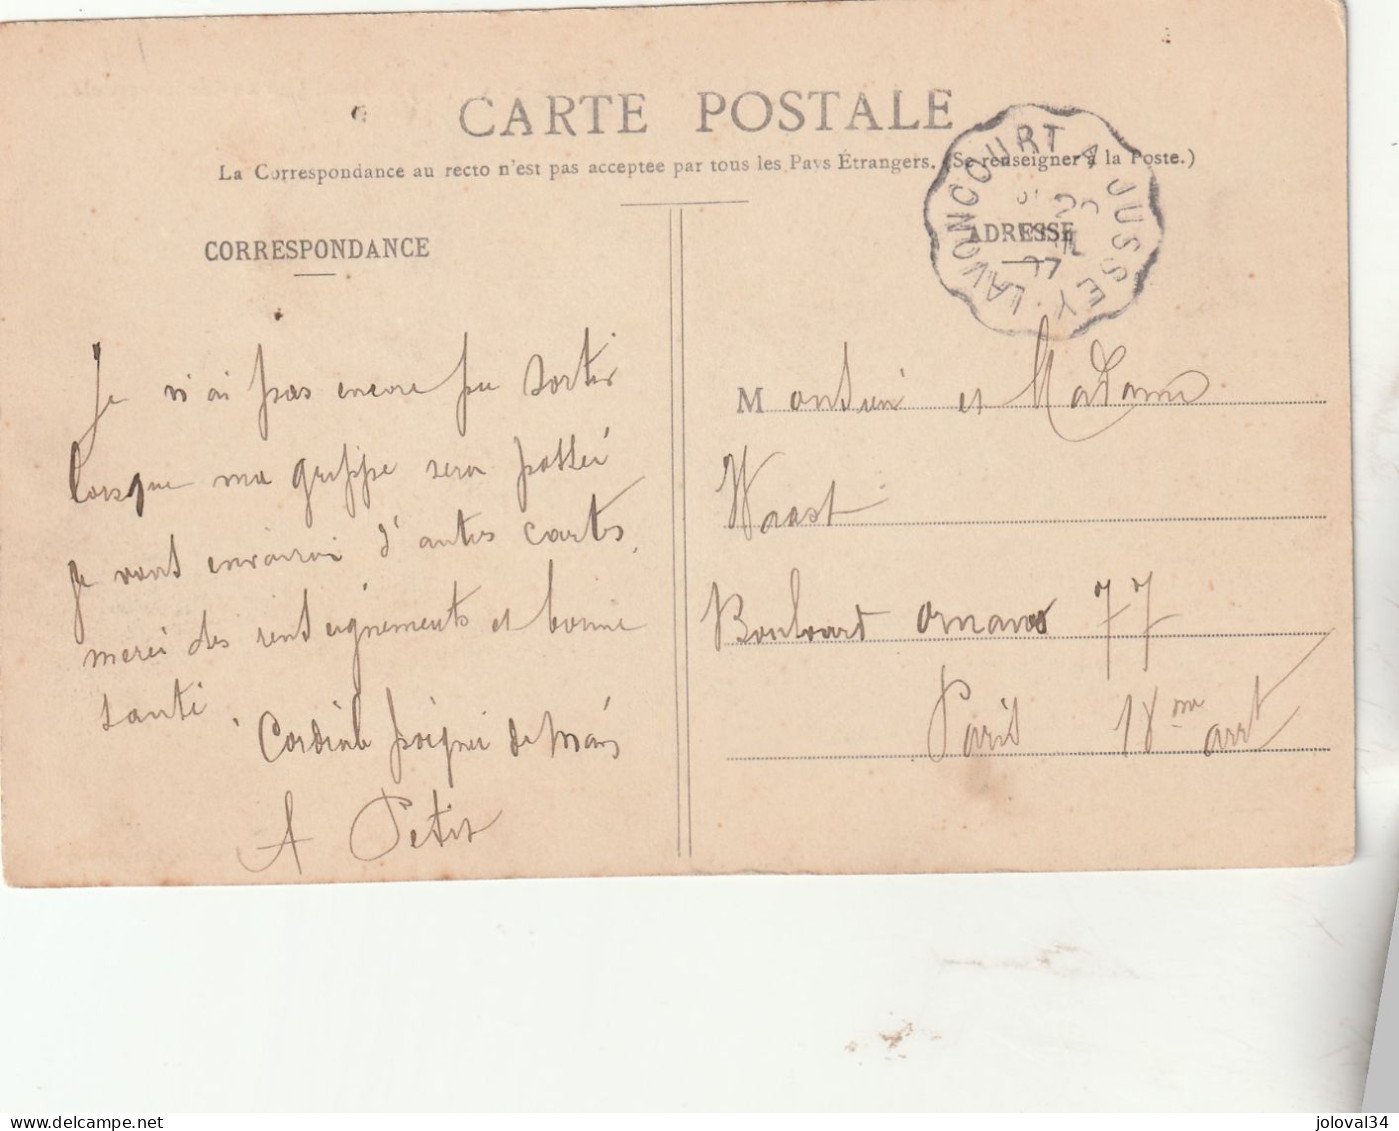 CARTE POSTALE
La Correspondance au recto n'est pas acceptee par tous les Pays Étrangers. (Se renseigner à la Poste.)
LAVONCOURT A JUSSEY
07
CORRESPONDANCE
ADRESSE
Je n'ai pas encore pu sortir
lorsque ma grippe sera passée
je vous enverrai d'autres cartes.
merci des renseignements et bonne
santé.
Cordiale poignée de mains
A Petit
Monsieur et Madame
Waast
Boulvard Ornano 77
Paris 18me arrt
joloval34